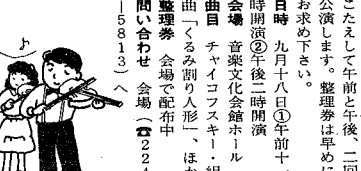 こたえして午前と午後、二回
公演します。整理券は早めに
お求め下さい。
日時　九月十八日①午前十
時開演②午後二時開演
会場　音楽文化会館ホール
曲目　チャイコフスキー・組
曲「くるみ割り人形」、ほか
整理券　会場で配布中
問い合わせ　会場（☎２２４
―５８１３）へ